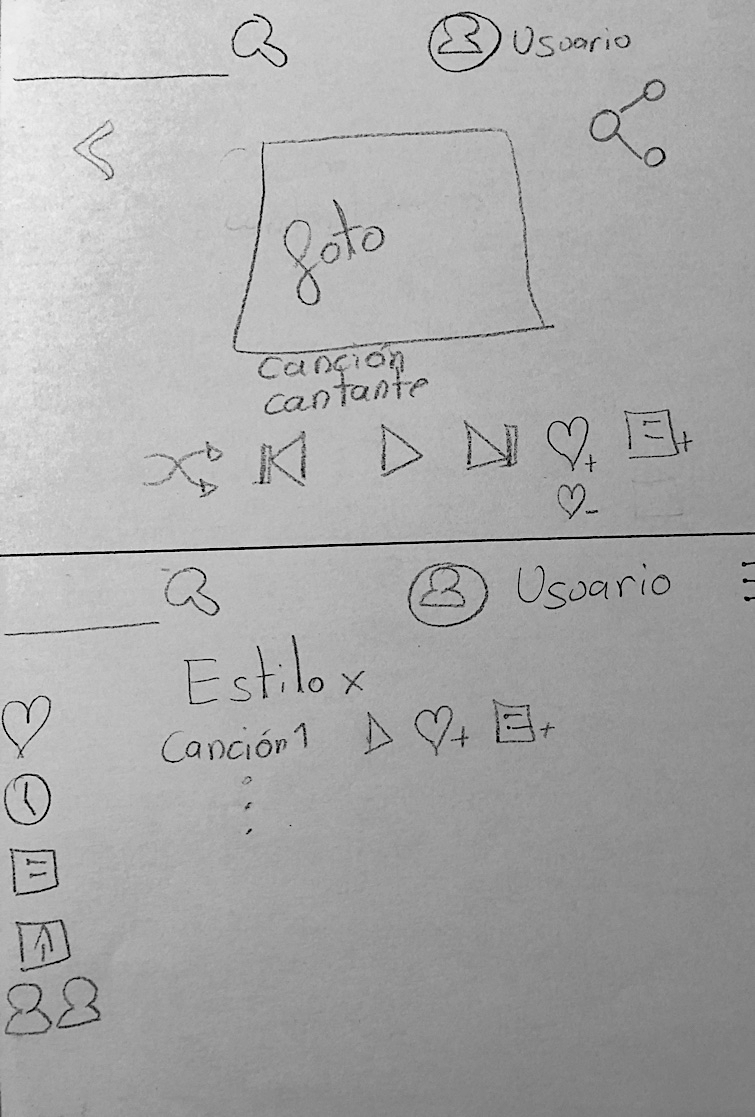 Usuario
foto
Canción
cantante
Usuario
Estilo x
Canción 1